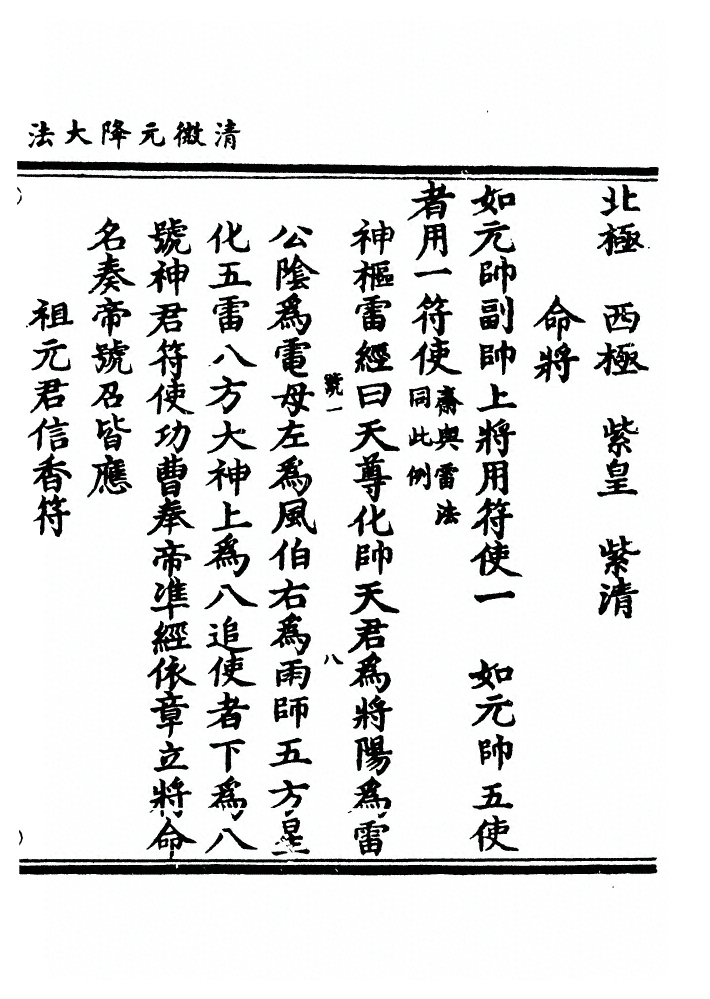 清微元降大法
北極　西極　紫皇　紫清
命將
如元帥副帥上將用符使一　如元帥五使
者用一符使齋與雷法同此例
神樞雷經曰天尊化帥天君爲將陽爲雷
號一　八
公陰爲電母左爲風伯右爲雨師五方皇
化五雷八方大神上爲八追使者下爲八
號神君符使功曹奉帝準經依章立將命
名奏帝號召皆應
祖元君信香符